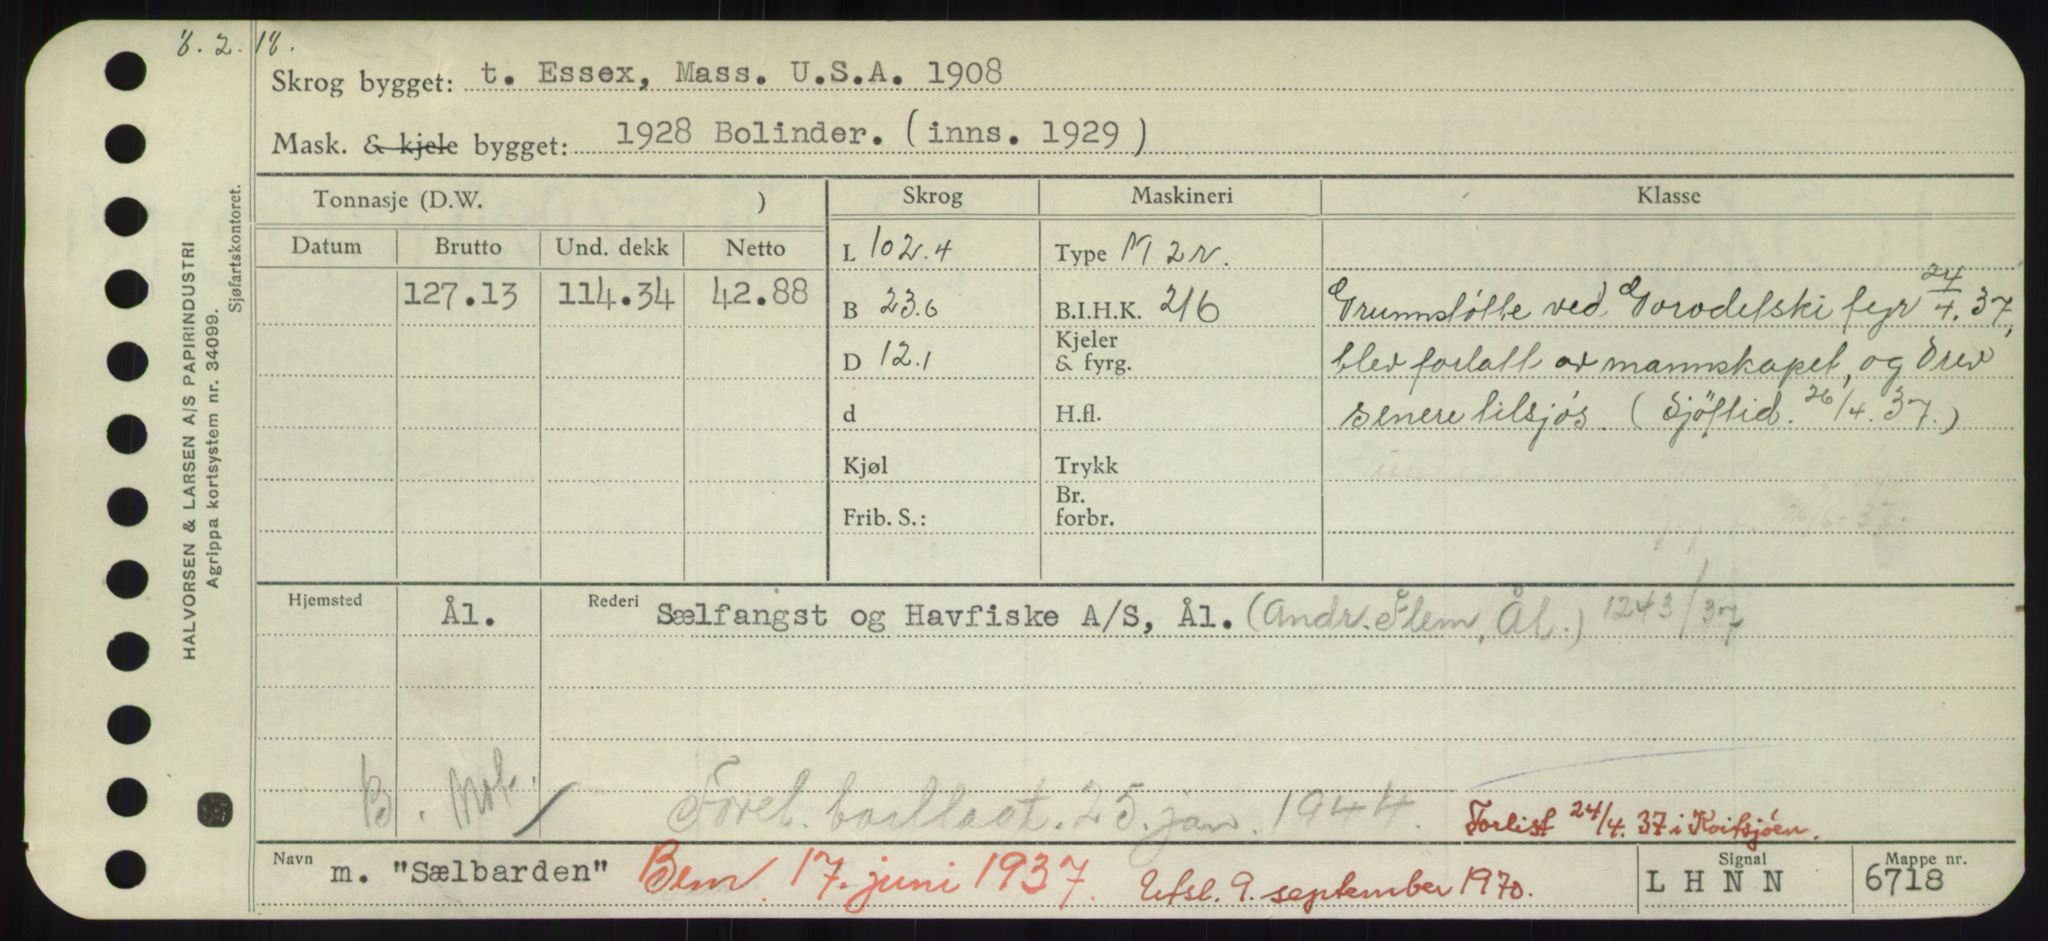 8. 2. 18.
Skrog bygget: t. Essex, Mass. U.S.A. 1908
Mask. & kjele bygget: 1928 Bolinder. (inns. 1929)
Tonnasje (D.W. )
Skrog
Maskineri
Klasse
Datum Brutto Und. dekk Netto
127.13 114.34 42.88
L 102.4
B 23.6
D 12.1
d
Kjøl
Frib. S.:
Type M 2 v.
B.I.H.K. 216
Kjeler
& fyrg.
H.fl.
Trykk
Br.
forbr.
Grunnstøtte ved Gorodetski fyr 24/4. 37,
blev forlatt av mannskapet, og drev
senere tilsjøs. (Sjöftid. 26/4. 37.)
Hjemsted Ål. Rederi Sælfangst og Havfiske A/S, Ål. (Andr. Flem, Ål.) 1243/37
B. Not. / Forel. bortlagt. 25. jan. 1944.
Forlist 24/4. 37 i Kvitsjøen.
Navn m. "Sælbarden" Bem. 17. juni 1937. Utsl. 9. september 1970.
Signal L H N N
Mappe nr. 6718
HALVORSEN & LARSEN A/S PAPIRINDUSTRI
Agrippa kortsystem nr. 34099.
Sjøfartskontoret.